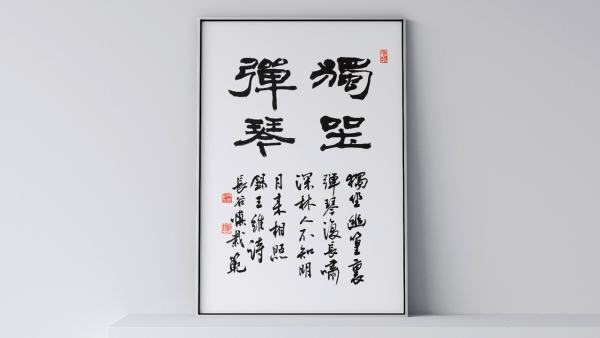 獨坐
彈琴
獨坐幽篁裏
彈琴復長嘯
深林人不知明
月来相照
錄王維詩
長谷慎哉範